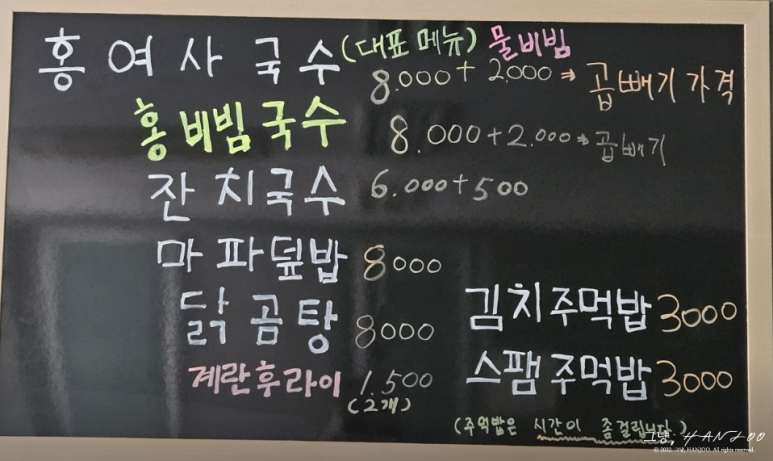 홍여사국수 (대표 메뉴) 물비빔
8.000 + 2.000 ⇒ 곱빼기 가격
홍비빔국수 8.000 + 2.000 ⇒ 곱빼기
잔치국수 6.000 + 500
마파덮밥 8000
닭곰탕 8000
김치주먹밥 3000
계란후라이 1.500
(2개)
스팸주먹밥 3000
(주먹밥은 시간이 좀걸립니다)
그냥, HANJOO
HANJOO. All rights reserved.